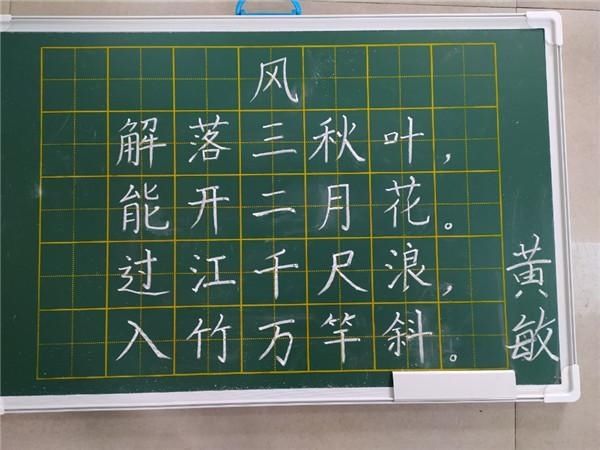 风
解落三秋叶，
能开二月花。
过江千尺浪，
入竹万竿斜。
黄敏